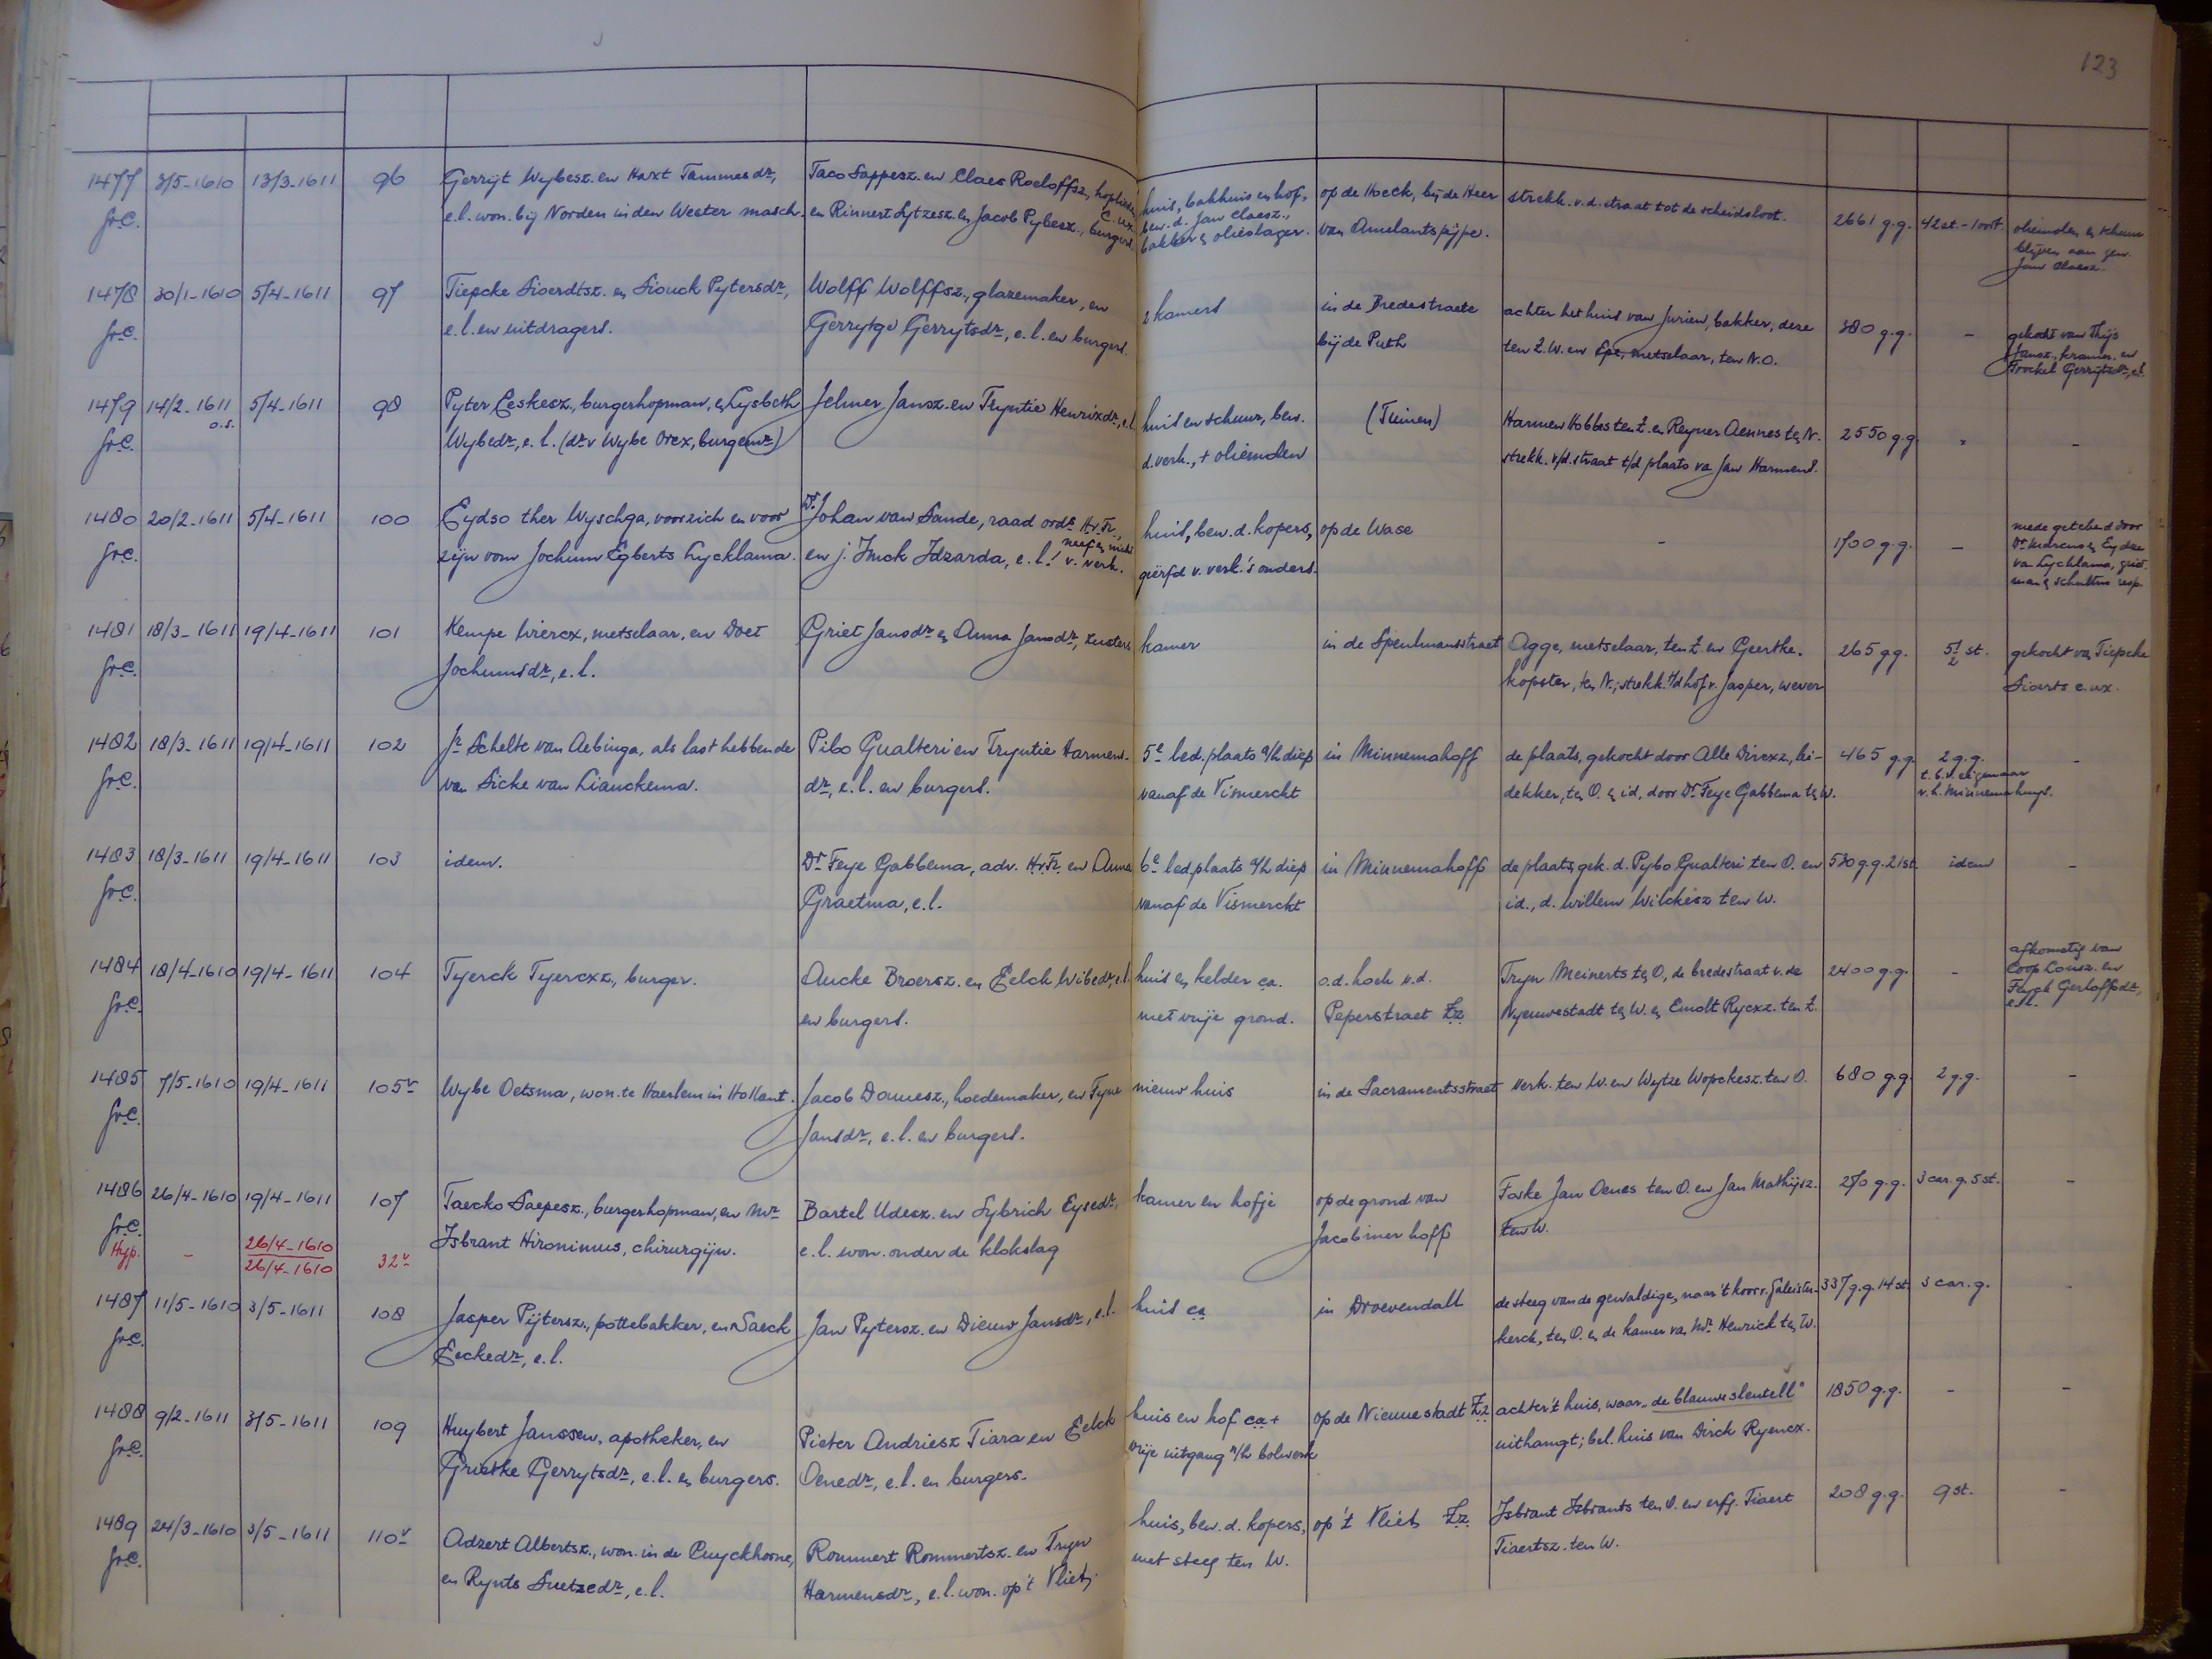 123
1477 3/5-1610 13/3-1611 96 Gerryt Wybesz. en Haxt Tammesdr, Taco Sappesz. en Claes Roeloffsz, hoplieden huis, bakhuis en hof, op de Hoeck, bij de Heer strekk. v.d. straat tot de scheidsloot. 2661 g.g. 42 st.-1 oort. oliemolen en schuur
gr.C. e.l. won. bij Norden in den Wester masch. en Rinnert Sytzesz. en Jacob Pybesz., burgers. c.ux. bew. d. Jan Claesz., van Amelants pijpe. blijven aan gen.
bakker en olieslager. Jan Claesz.
1478 30/1-1610 5/4-1611 97 Tiepcke Sioerdtsz. en Siouck Pytersdr, Wolff Wolffsz., glazemaker, en 2 kamers in de Bredestraete achter het huis van Jurien, bakker, deze 380 g.g. - gekocht van Thijs
gr.C. e.l. en uitdragers. Gerrytge Gerrytsdr, e.l. en burgers. bij de Puth ten Z.W. en Epe, metselaar, ten N.O. Jansz., kramer, en
Froukel Gerrytsdr, e.l.
1479 14/2-1611 5/4-1611 98 Pyter Eeskesz., burgerhopman, en Lysbeth Jelmer Jansz. en Tryntie Henrixdr, e.l. huis en schuur, bew. (Tuinen) Harmen Hobbes ten Z. en Reyner Aennes ten N. 2550 g.g. - -
gr.C. o.s. Wybedr, e.l. (dr v Wybe Orex, burgemr) d. verk., + oliemolen strekk. v/d. straat t/d plaats va Jan Harmens.
1480 20/2-1611 5/4-1611 100 Eydso ther Wyschga, voor zich en voor Dr Johan van Sande, raad ordr H.v.Fr., huis, bew. d. kopers, op de Wase - 1700 g.g. - mede getekend door
gr.C. zijn oom Jochum Egberts Lycklama. en j. Imck Idzarda, e.l.! neef en nicht v. verk. geërfd v. verk.'s ouders. Dr Marcus en Eydze
va Lycklama, griet-
man en schultus resp.
1481 18/3-1611 19/4-1611 101 Kempe Wiercx, metselaar, en Doet Griet Jansdr en Anna Jansdr, zusters kamer in de Speulmansstraet Agge, metselaar, ten Z. en Geertke. 265 g.g. 5 1/2 st. gekocht van Tiepcke
gr.C. Jochumsdr, e.l. kopster, ten N.; strekk. t/d hof v. Jasper, wever Sioerts c.ux.
1482 18/3-1611 19/4-1611 102 Jr Schelte van Aebinga, als last hebbende Pibo Gualteri en Tryntie Harmens- 5e led. plaats a/h diep in Minnemahoff de plaats, gekocht door Alle Dircxz, lei- 465 g.g. 2 g.g. -
gr.C. van Sicke van Lianckema. dr, e.l. en burgers. vanaf de Vismerckt dekker, ten O. en id. door Dr Feye Gabbema ten W. t.b.v. eigenaar
v.h. Minnemahuys.
1483 18/3-1611 19/4-1611 103 idem. Dr Feye Gabbema, adv. H.v.Fr. en Anna 6e led. plaats a/h diep in Minnemahoff de plaats, gek. d. Pybo Gualteri ten O. en 530 g.g. 21 st. idem -
gr.C. Graetma, e.l. vanaf de Vismerckt id., d. Willem Wilckesz ten W.
1484 18/4-1610 19/4-1611 104 Tyerck Tyercxz., burger. Aucke Broersz. en Eelck Wibedr, e.l. huis en kelder ca. o.d. hoek v.d. Tryn Meinerts ten O, de bredestraat v. de 2400 g.g. - afkomstig van
gr.C. en burgers. met vrije grond. Peperstraet Zz Nyeuwestadt ten W. en Emolt Rycxz. ten Z. Coop Lousz. en
Fryck Gerloffsdr,
e.l.
1485 7/5-1610 19/4-1611 105v Wybe Oetsma, won. te Haerlem in Hollant. Jacob Douwesz., hoedemaker, en Tyne nieuw huis in de Sacramentsstraet verk. ten W. en Wytze Wopckesz. ten O. 680 g.g. 2 g.g. -
gr.C. Jansdr, e.l. en burgers.
1486 26/4-1610 19/4-1611 107 Taecko Saepesz., burgerhopman, en Mr Bartel Udesz. en Sybrich Eysedr, kamer en hofje op de grond van Foske Jan Oenes ten O. en Jan Mathijsz. 270 g.g. 3 car.g. 5 st. -
gr.C. Isbrant Hironimus, chirurgijn. e.l. won. onder de klokslag Jacobiner hoff ten W.
Hyp. - 26/4-1610 32v
26/4-1610
1487 11/5-1610 3/5-1611 108 Jasper Pijtersz., pottebakker, en Saeck Jan Pytersz. en Dieuw Jansdr, e.l. huis ca in Droevendall de steeg van de gewaldige, naar 't koor v. Galeister- 337 g.g. 14 st. 3 car.g. -
gr.C. Eeckedr, e.l. kerck, ten O. en de kamer va Mr Henrick ten W.
1488 9/2-1611 3/5-1611 109 Huybert Janssen, apotheker, en Pieter Andriesz Tiara en Eelck huis en hof ca + op de Nieuwestadt Zz achter 't huis, waar „de blauwe sleutell" 1850 g.g. - -
gr.C. Grietke Gerrytsdr, e.l. en burgers. Oenedr, e.l. en burgers. vrije uitgang n/h bolwerk uithangt; bel. huis van Dirck Ryencx.
1489 24/3-1610 3/5-1611 110v Adzert Albertsz., won. in de Cuyckhorne, Rommert Rommertsz. en Tryn huis, bew. d. kopers, op 't Vliet Zz. Isbrant Isbrants ten O. en erfg. Tiaert 208 g.g. 9 st. -
gr.C. en Rynts Suetzedr, e.l. Harmensdr, e.l. won. op 't Vliet. met steeg ten W. Tiaertsz. ten W.